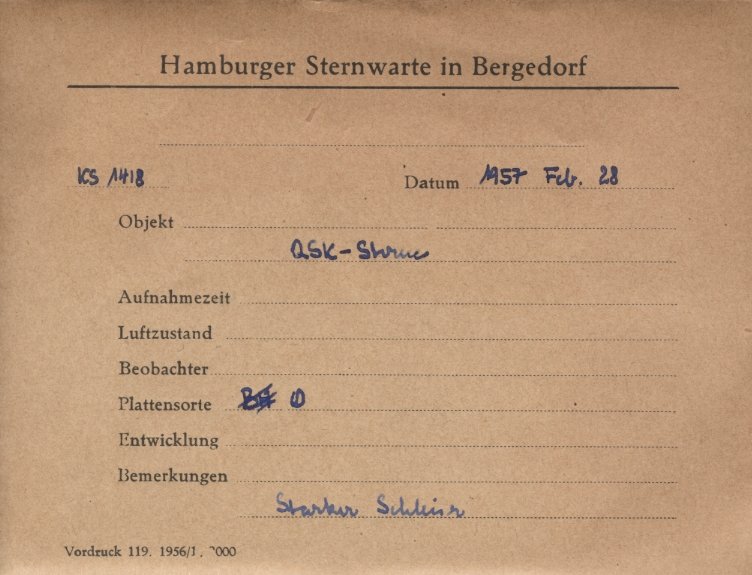 Hamburger Sternwarte in Bergedorf
KS 1418 Datum 1957 Feb. 28
Objekt
QSK-Sterne
Aufnahmezeit
Luftzustand
Beobachter
Plattensorte O
Entwicklung
Bemerkungen
Starker Schleier
Vordruck 119. 1956/1, 000